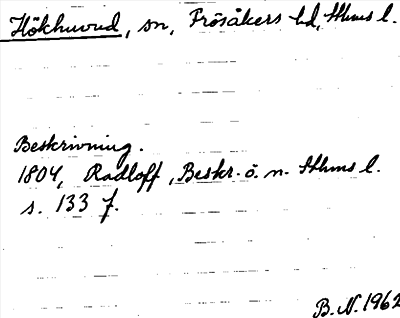 Hökhuvud, sn, Frösåkers hd, Sthms l.
Beskrivning.
1804, Radloff, Beskr. ö. n. Sthms l.
s. 133 f.
B.N. 1962